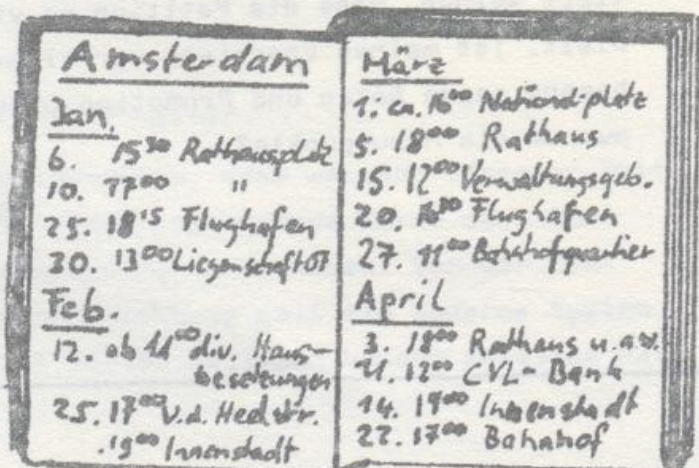 Amsterdam
Jan.
6. 15³⁰ Rathausplatz
10. 17⁰⁰ "
25. 18¹⁵ Flughafen
30. 13⁰⁰ Liegenschaft
Feb.
12. ab 11⁰⁰ div. Haus-
besetzungen
25. 17⁰⁰ V.d. Heelstr.
19⁰⁰ Innenstadt
März
1. ca. 16⁰⁰ National-platz
5. 18⁰⁰ Rathaus
15. 12⁰⁰ Verwaltungsgeb.
20. 16³⁰ Flughafen
27. 11⁰⁰ Bahnhofquartier
April
3. 18⁰⁰ Rathaus u.a.
11. 12⁰⁰ CVL-Bank
14. 19⁰⁰ Innenstadt
22. 17⁰⁰ Bahnhof